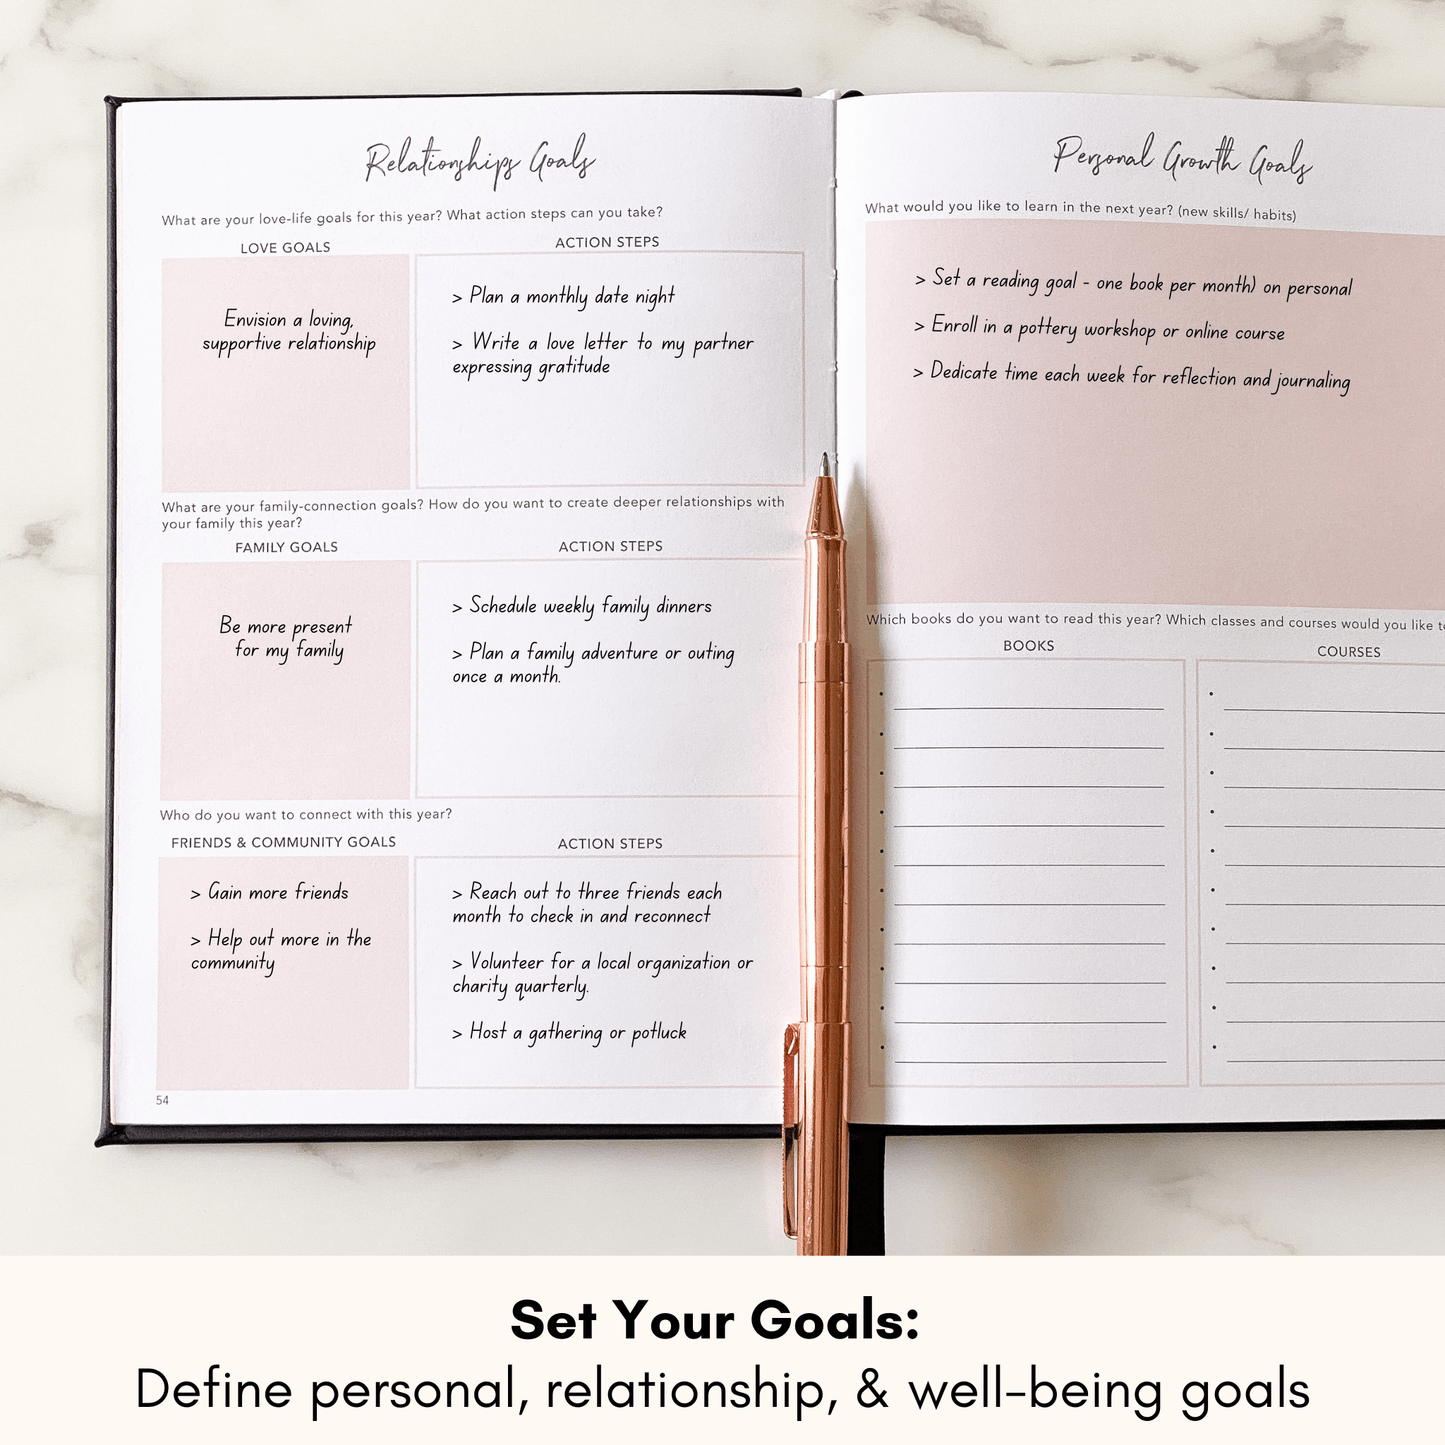 Relationships Goals
What are your love-life goals for this year? What action steps can you take?
LOVE GOALS
ACTION STEPS
Envision a loving,
supportive relationship
> Plan a monthly date night
> Write a love letter to my partner
expressing gratitude
What are your family-connection goals? How do you want to create deeper relationships with
your family this year?
FAMILY GOALS
ACTION STEPS
Be more present
for my family
> Schedule weekly family dinners
> Plan a family adventure or outing
once a month.
Who do you want to connect with this year?
FRIENDS & COMMUNITY GOALS
ACTION STEPS
> Gain more friends
> Help out more in the
community
> Reach out to three friends each
month to check in and reconnect
> Volunteer for a local organization or
charity quarterly.
> Host a gathering or potluck
54
Personal Growth Goals
What would you like to learn in the next year? (new skills/ habits)
> Set a reading goal - one book per month) on personal
> Enroll in a pottery workshop or online course
> Dedicate time each week for reflection and journaling
Which books do you want to read this year? Which classes and courses would you like
BOOKS
COURSES
Set Your Goals:
Define personal, relationship, & well-being goals